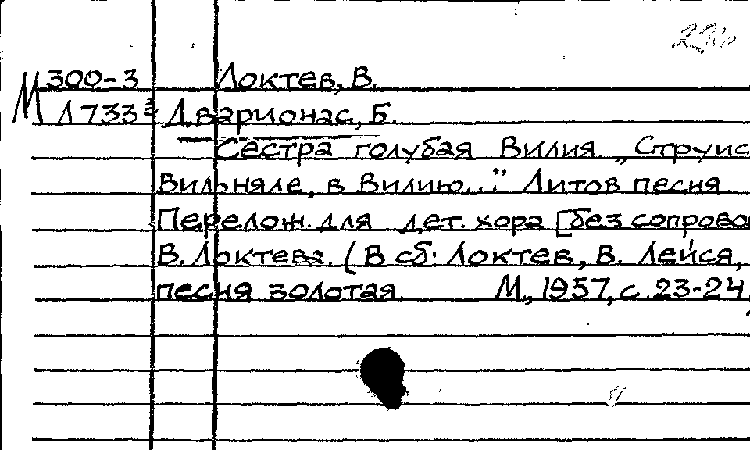 М 300-3 Локтев, В.
Л 733 Дварионас, Б.
Сестра голубая Вилия. „Струис
Вильняле, в Вилию..." Литов песня
Перелож. для дет. хора [без сопровож
В. Локтева. (В сб: Локтев, В. Лейся,
песня золотая. М., 1957, с. 23-24,